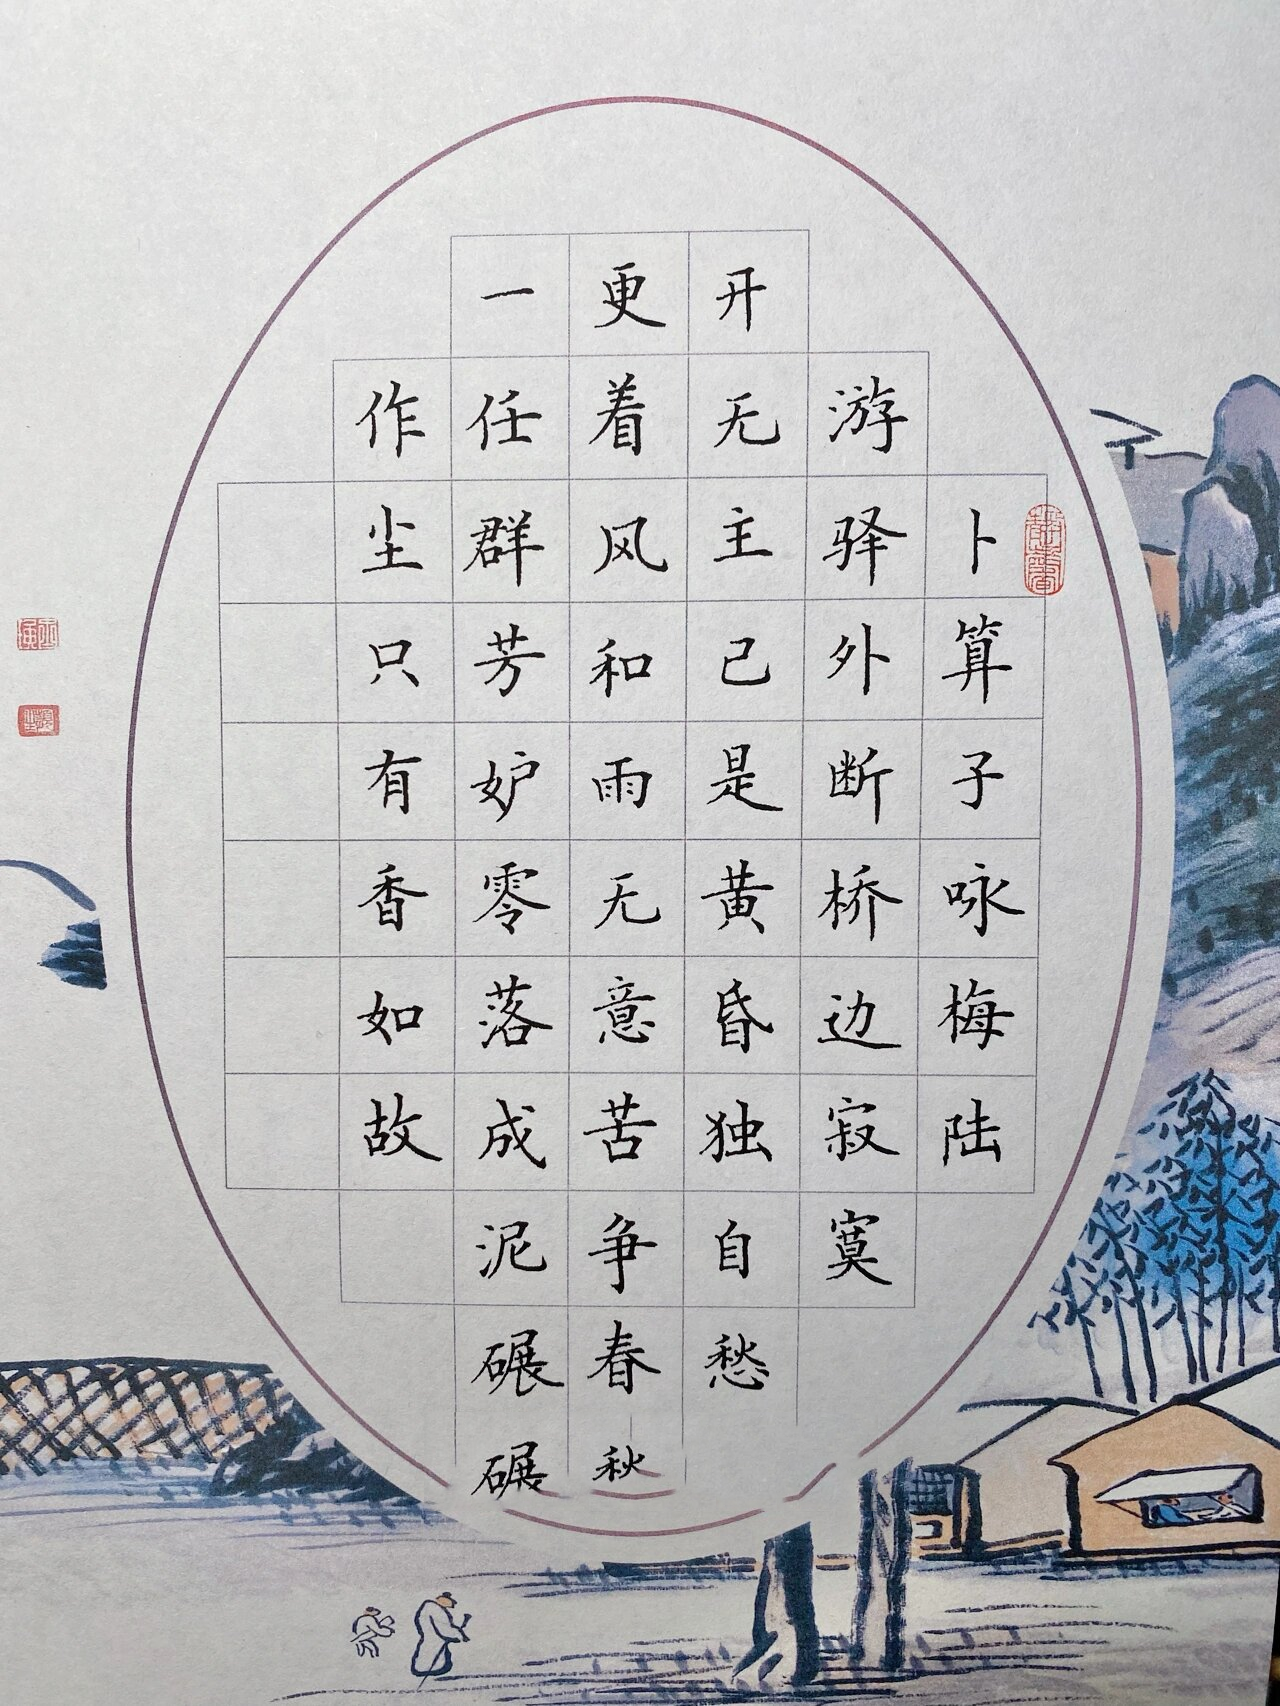 卜算子咏梅陆
游驿外断桥边寂寞
开无主已是黄昏独自愁
更着风和雨无意苦争春秋
一任群芳妒零落成泥碾碾
作尘只有香如故